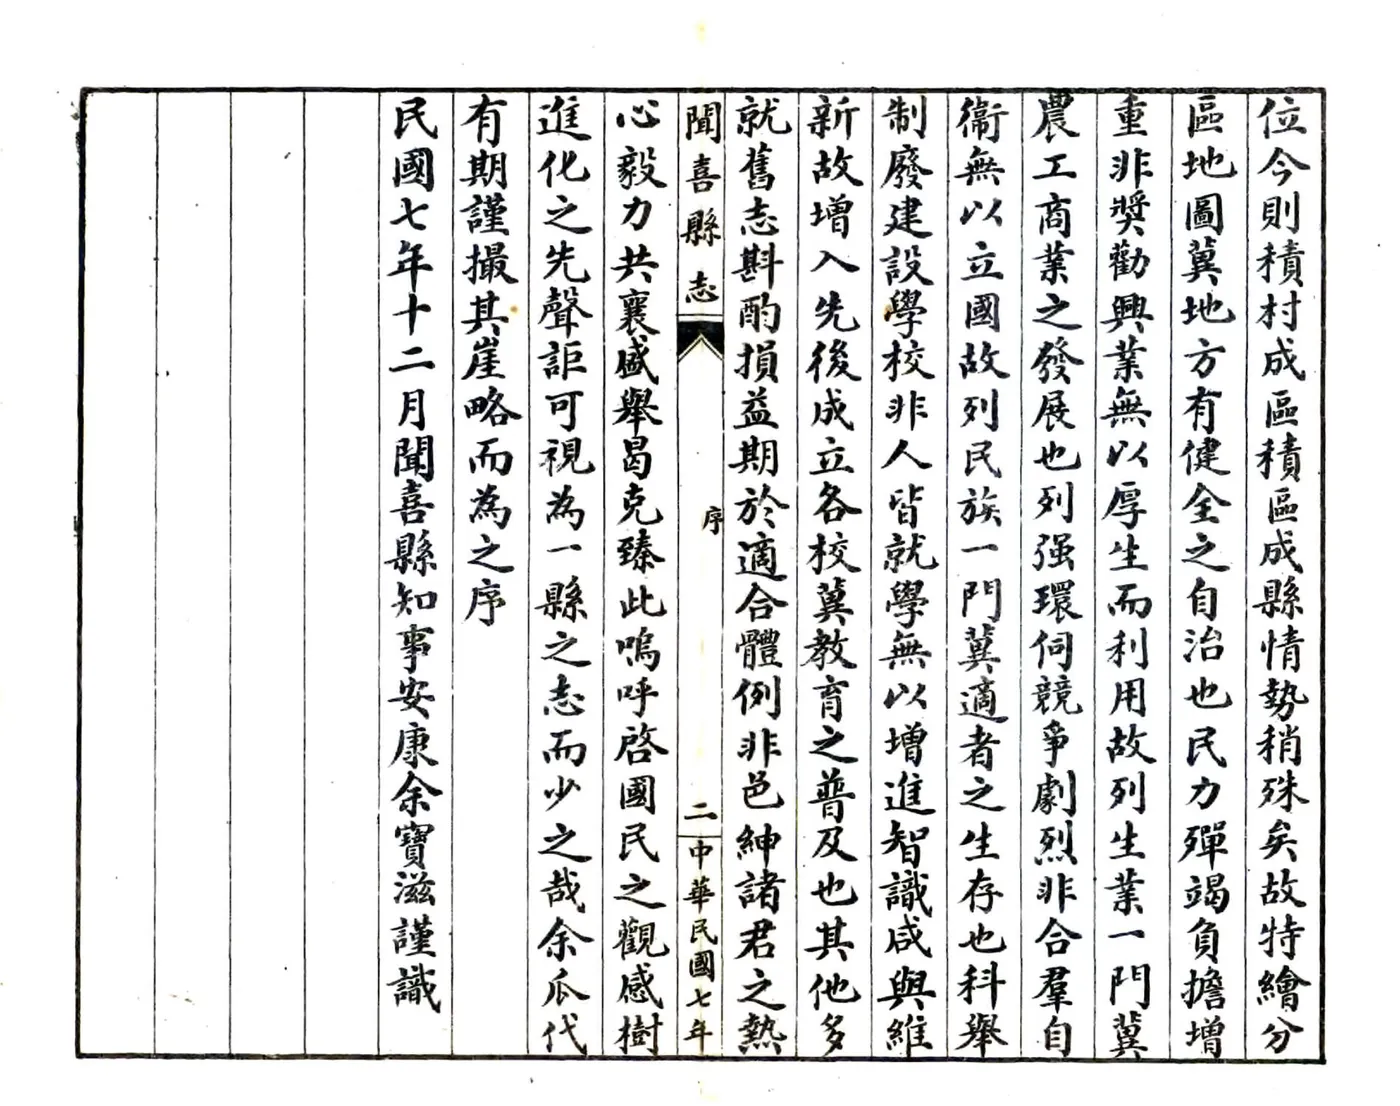 位今則積村成區積區成縣情勢稍殊矣故特繪分
區地圖冀地方有健全之自治也民力殫竭負擔增
重非獎勸興業無以厚生而利用故列生業一門冀
農工商業之發展也列强環伺競爭劇烈非合羣自
衞無以立國故列民族一門冀適者之生存也科舉
制廢建設學校非人皆就學無以增進智識咸與維
新故增入先後成立各校冀教育之普及也其他多
就舊志斟酌損益期於適合體例非邑紳諸君之熱
聞喜縣志
序
二
中華民國七年
心毅力共襄盛舉曷克臻此嗚呼啓國民之觀感樹
進化之先聲詎可視為一縣之志而少之哉余瓜代
有期謹撮其崖略而為之序
民國七年十二月聞喜縣知事安康余寶滋謹識